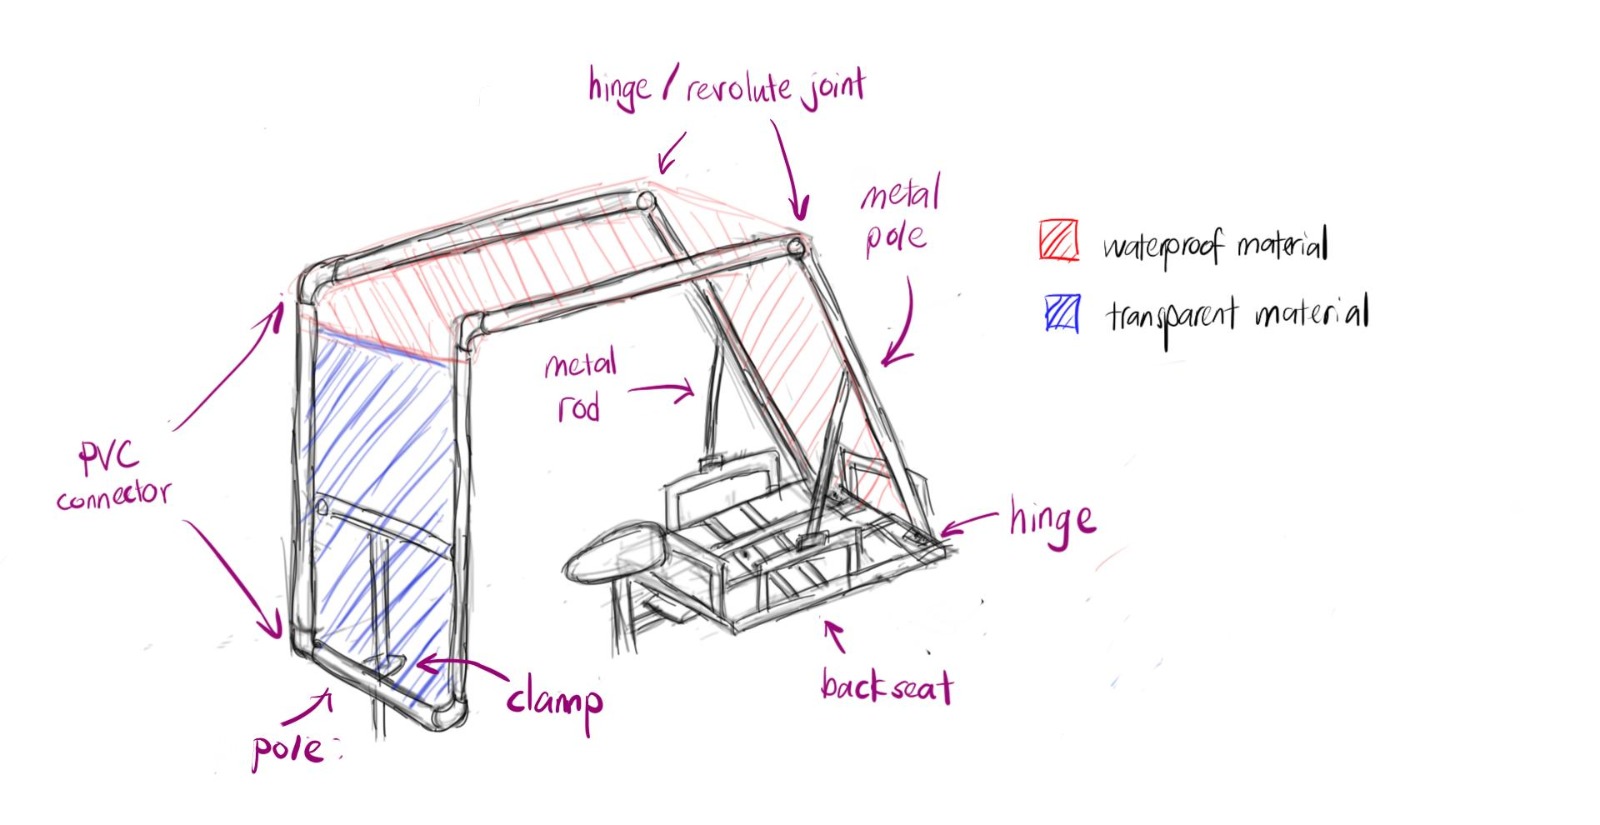 hinge / revolute joint
metal
pole
waterproof material
transparent material
metal
rod
PVC
connector
hinge
clamp
backseat
pole: